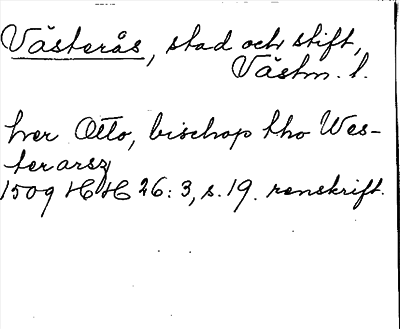 Västerås, stad och stift,
Västm. l.
her Otto, bischop tho Wes-
terarsz
1509 HH 26: 3, s. 19. renskrift.